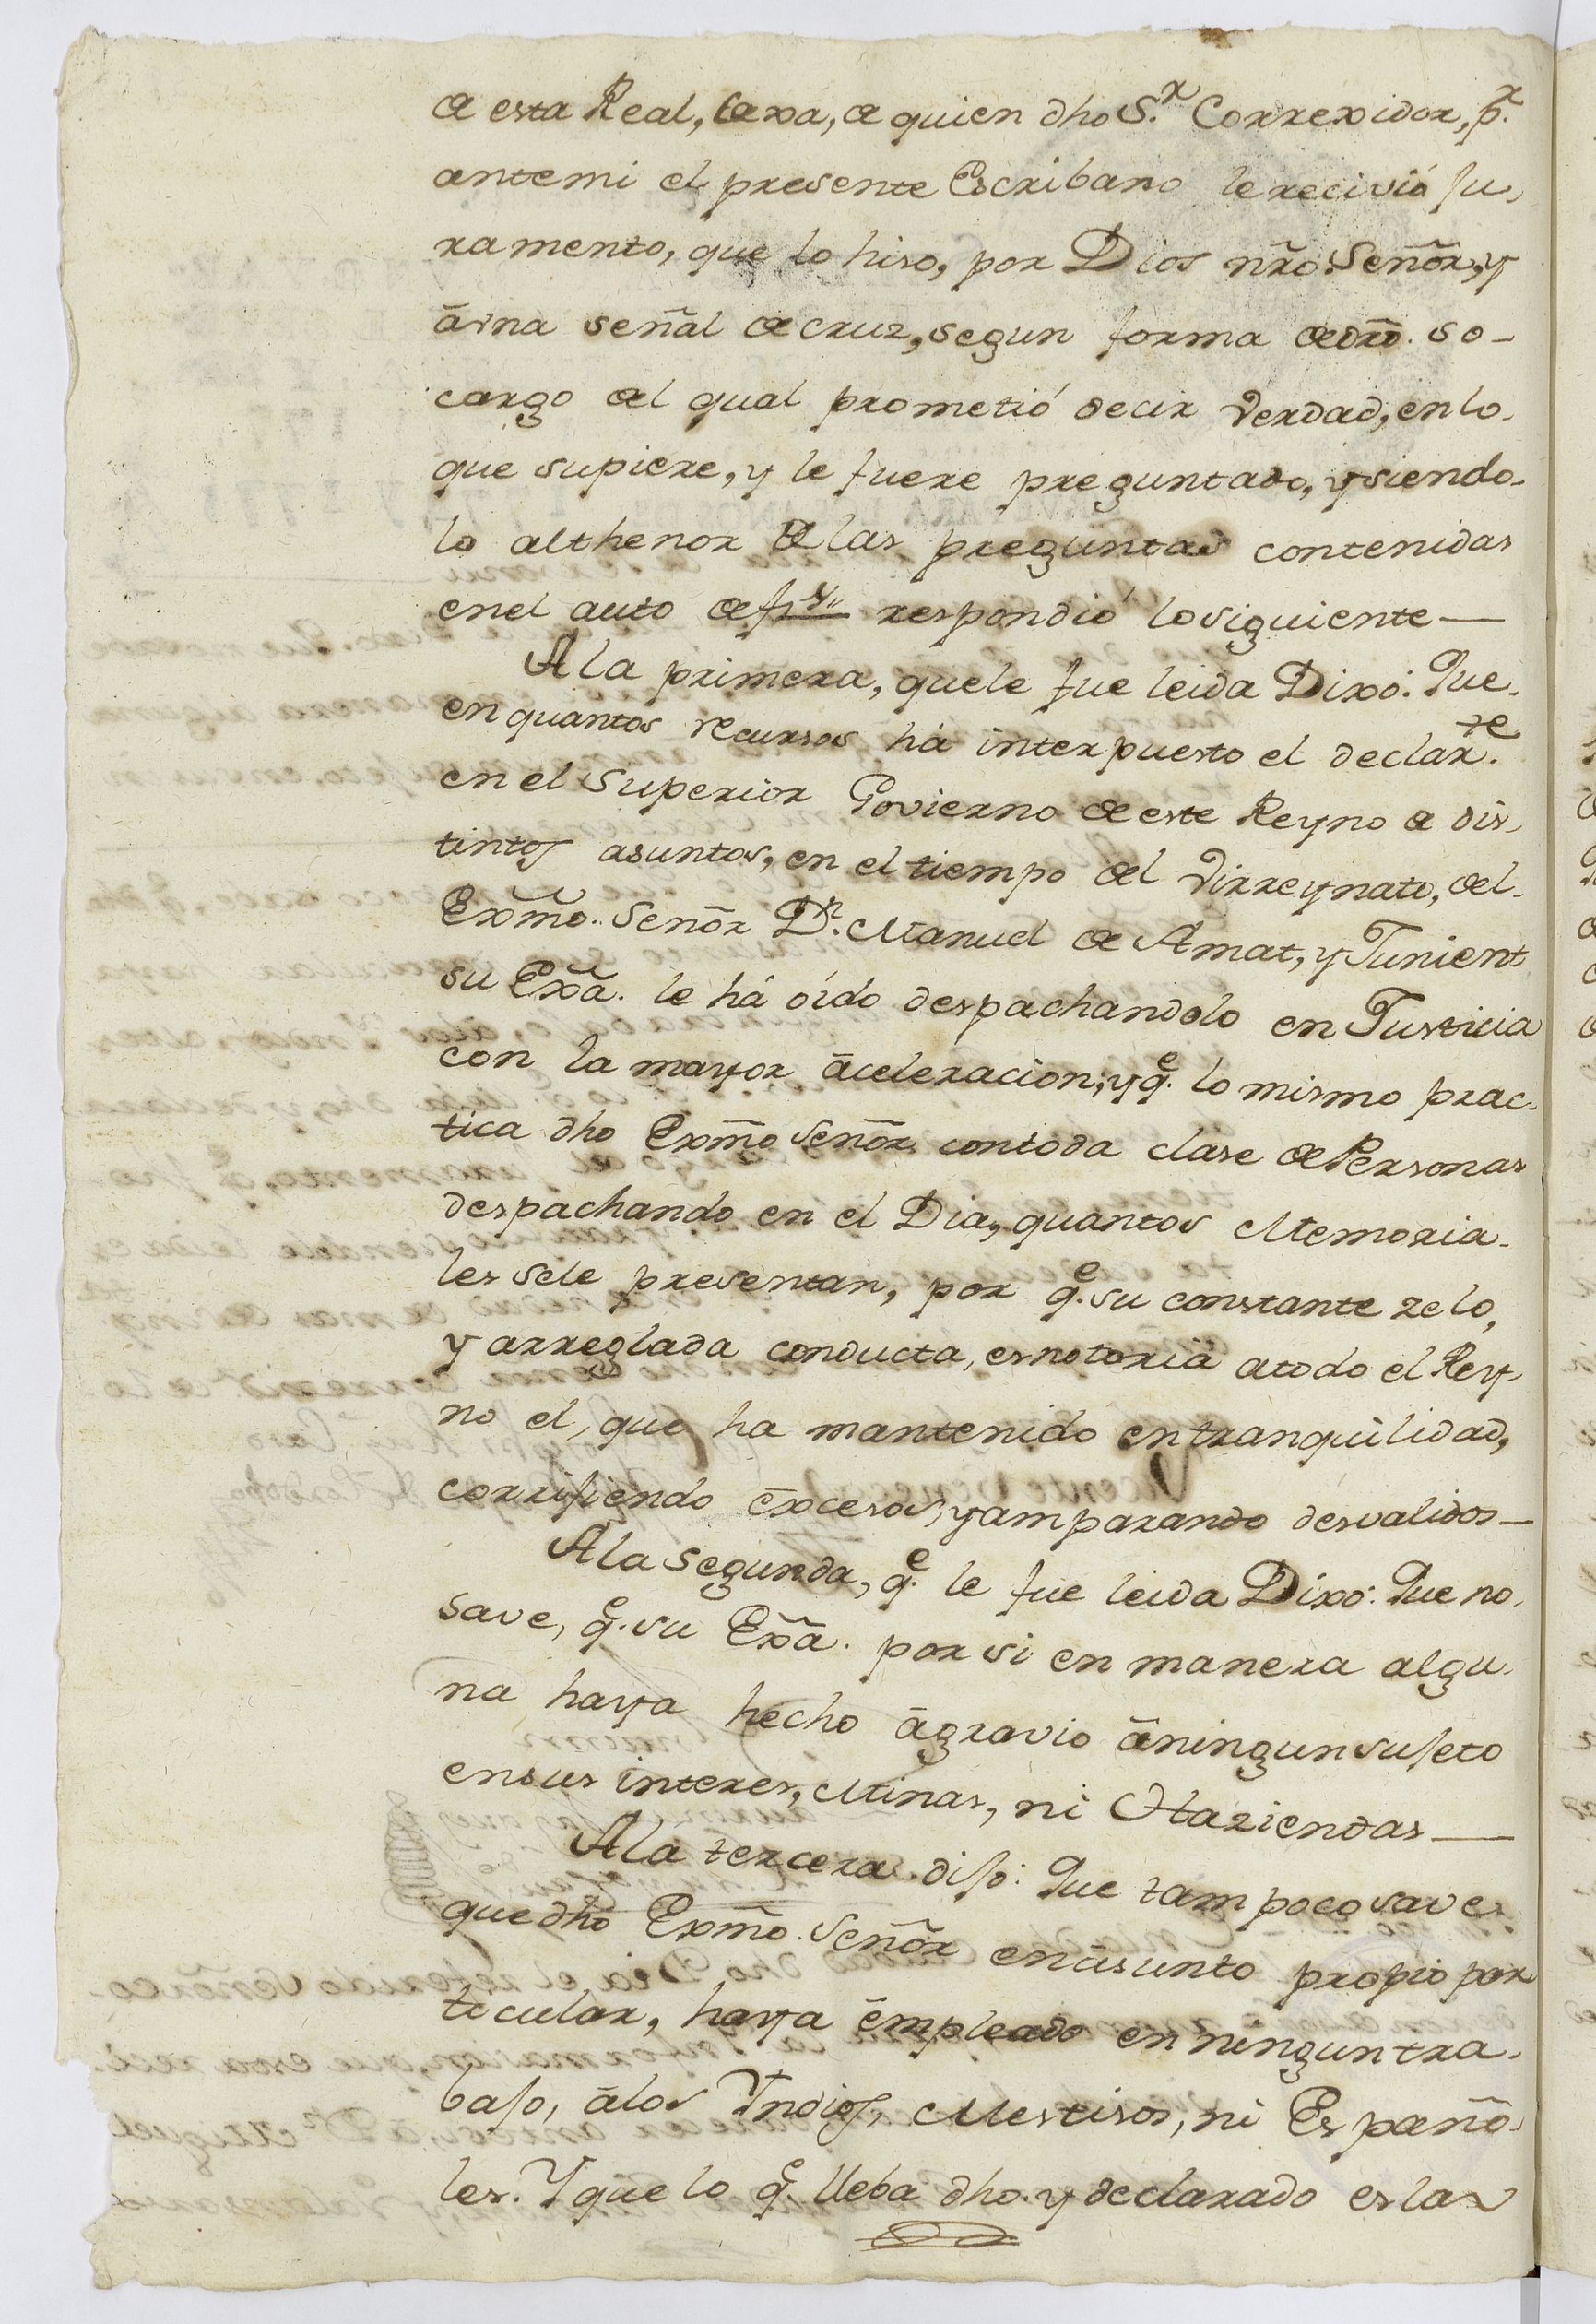 de esta Real, Caxa, de quien dho S.r Correxidor, p.r
antemi el presente Escribano le recivió Ju,
ramento, que lo hiso, por Dios nr̃o. Señor, y
á vna señal de cruz, segun forma de dr̃o. so-
cargo del qual prometió decir Verdad, en lo-
que supiere, y le fuere preguntado, y siendo-
lo althenor de las preguntas contenidas
enel auto de respondió lo siguiente—
A la primera, quele fue leida Dixo: Que-
en quantos recursos há interpuesto el declar.te
en el Superior Govierno de este Reyno de dis,
tintos asuntos, en el tiempo del Virreynato, del-
Exm̃o. Señor D.n Manuel de Amat, y Junient
su Exã. le há oído despachandolo en Justicia
con la mayor áceleracion; y q.e lo mismo prac-
tica dho Exm̃o Señor con toda clase de Personas
despachando en el Dia, quantos Memoria-
les sele presentan, por q.e su constante zelo,
y arreglada conducta, es notoria a todo el Rey-
no el, que ha mantenido en tranquilidad,
corrijiendo éxcesos, y amparando desvalidos—
A la Segunda, q.e le fue leida Dixo: Que no,
save, q.e su Exã. por si en manera algu-
na haya hecho ágravio áningun sujeto
en sus interes, Minas, ni Haziendas—
A la tercera dijo: Que tampoco save
que dho Exm̃o. Señor en ásunto propio par
ticular, haya émpleado en ningun tra-
bajo, álos Yndios, Mestisos, ni Españo-
les. Y que lo q.e lleba dho. y declarado es la